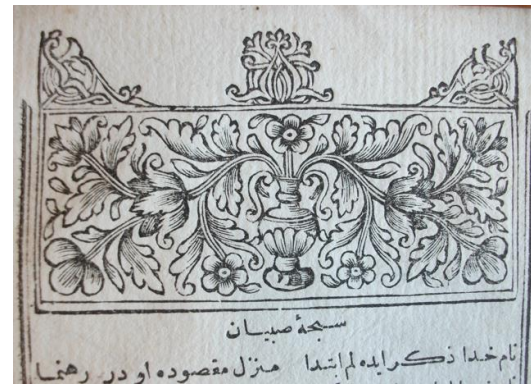 سبحهٔ صبیان
نام خدا ذکر ایده لم ابتدا منزل مقصوده او در رهنما